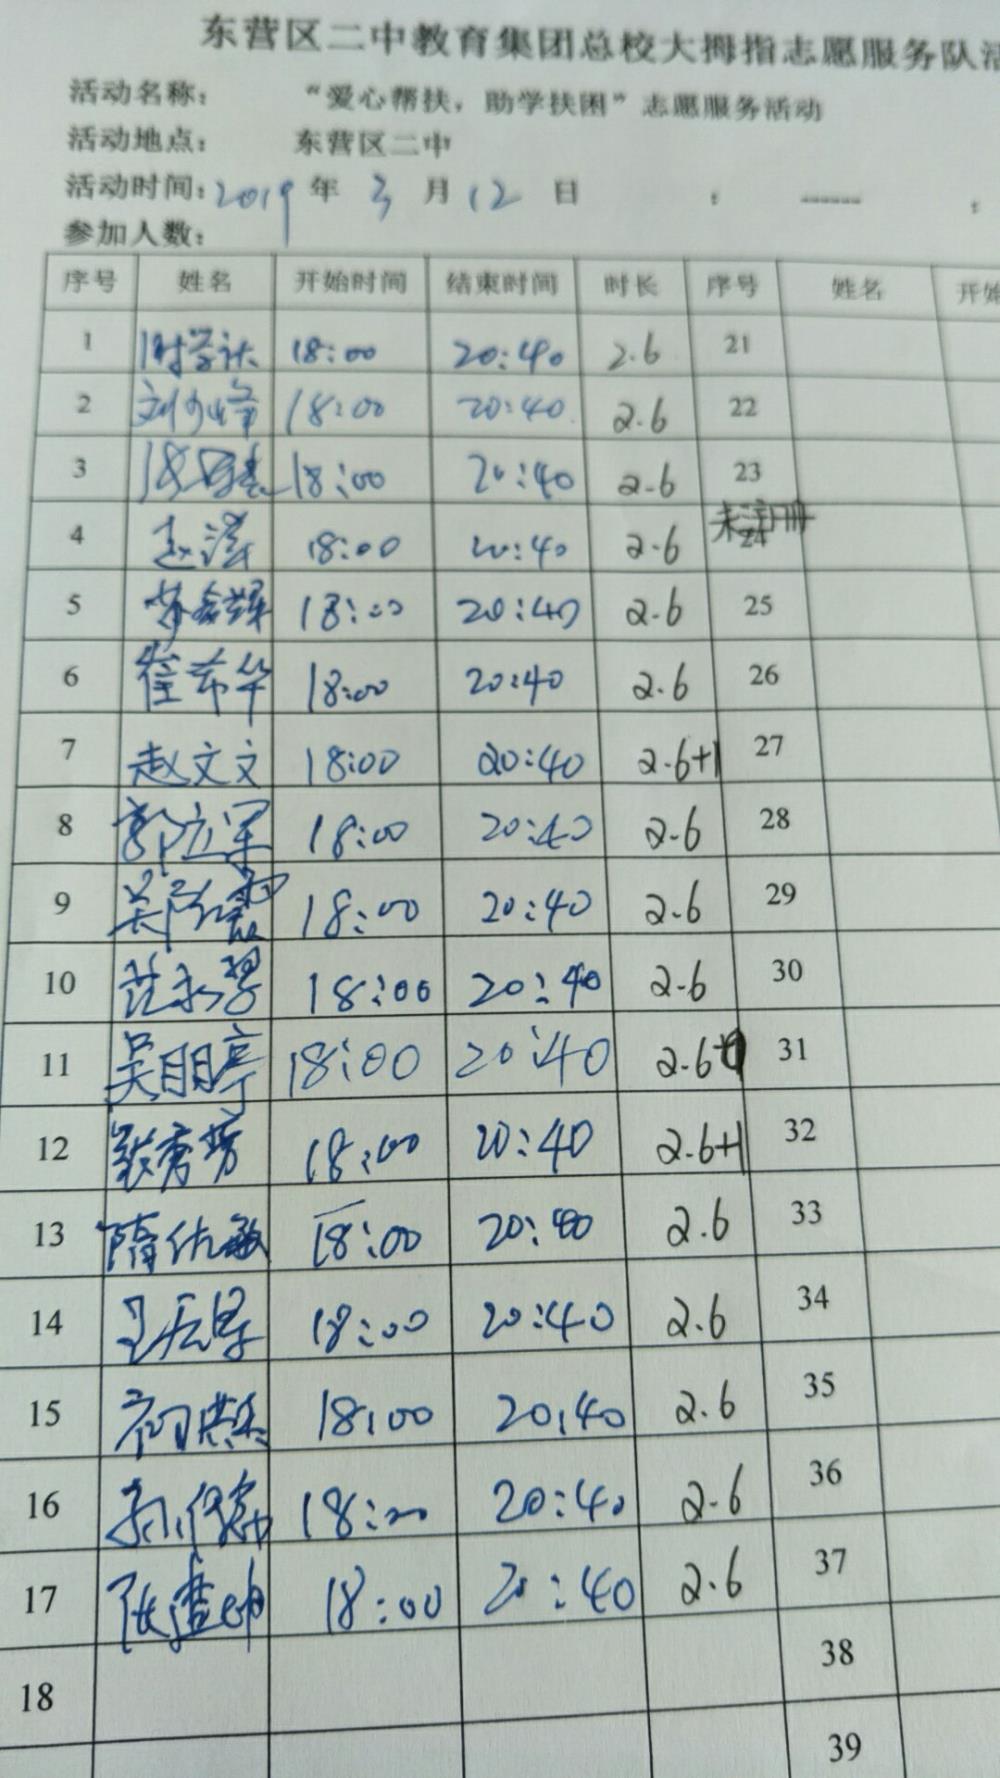 东营区二中教育集团总校大拇指志愿服务队活
活动名称： “爱心帮扶，助学扶困”志愿服务活动
活动地点： 东营区二中
活动时间：2019年 3 月 12 日 ： ------ ：
参加人数：
序号 姓名 开始时间 结束时间 时长 序号 姓名 开始
1 18:00 20:40 2.6 21
2 18:00 20:40 2.6 22
3 18:00 20:40 2.6 23
4 赵 18:00 20:40 2.6 未注册 24
5 18:00 20:40 2.6 25
6 崔希华 18:00 20:40 2.6 26
7 赵文文 18:00 20:40 2.6+1 27
8 郭立军 18:00 20:40 2.6 28
9 18:00 20:40 2.6 29
10 18:00 20:40 2.6 30
11 吴朋亭 18:00 20:40 2.6 31
12 张秀芳 18:00 20:40 2.6+1 32
13 隋 18:00 20:40 2.6 33
14 18:00 20:40 2.6 34
15 18:00 20:40 2.6 35
16 18:00 20:40 2.6 36
17 18:00 20:40 2.6 37
18 38
39